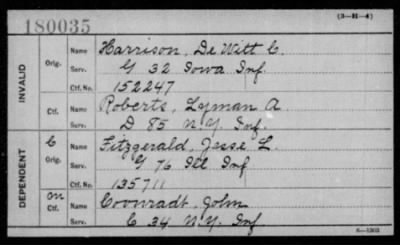 180035
(3-H-4)
INVALID
Orig. Name Harrison, De Witt C.
Serv. G 32 Iowa Inf.
Ctf. No. 152247
Ctf. Name Roberts, Lyman A
Serv. D 85 N.Y. Inf.
DEPENDENT
C Orig. Name Fitzgerald, Jesse L.
Serv. G 76 Ill Inf
Ctf. No. 135711
m Ctf. Name Coonradt, John
Serv. C 34 N.Y. Inf